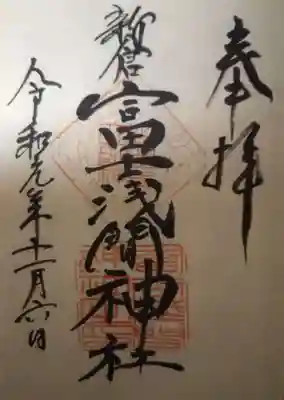 奉拝
新倉
富士浅間神社
令和元年十一月六日